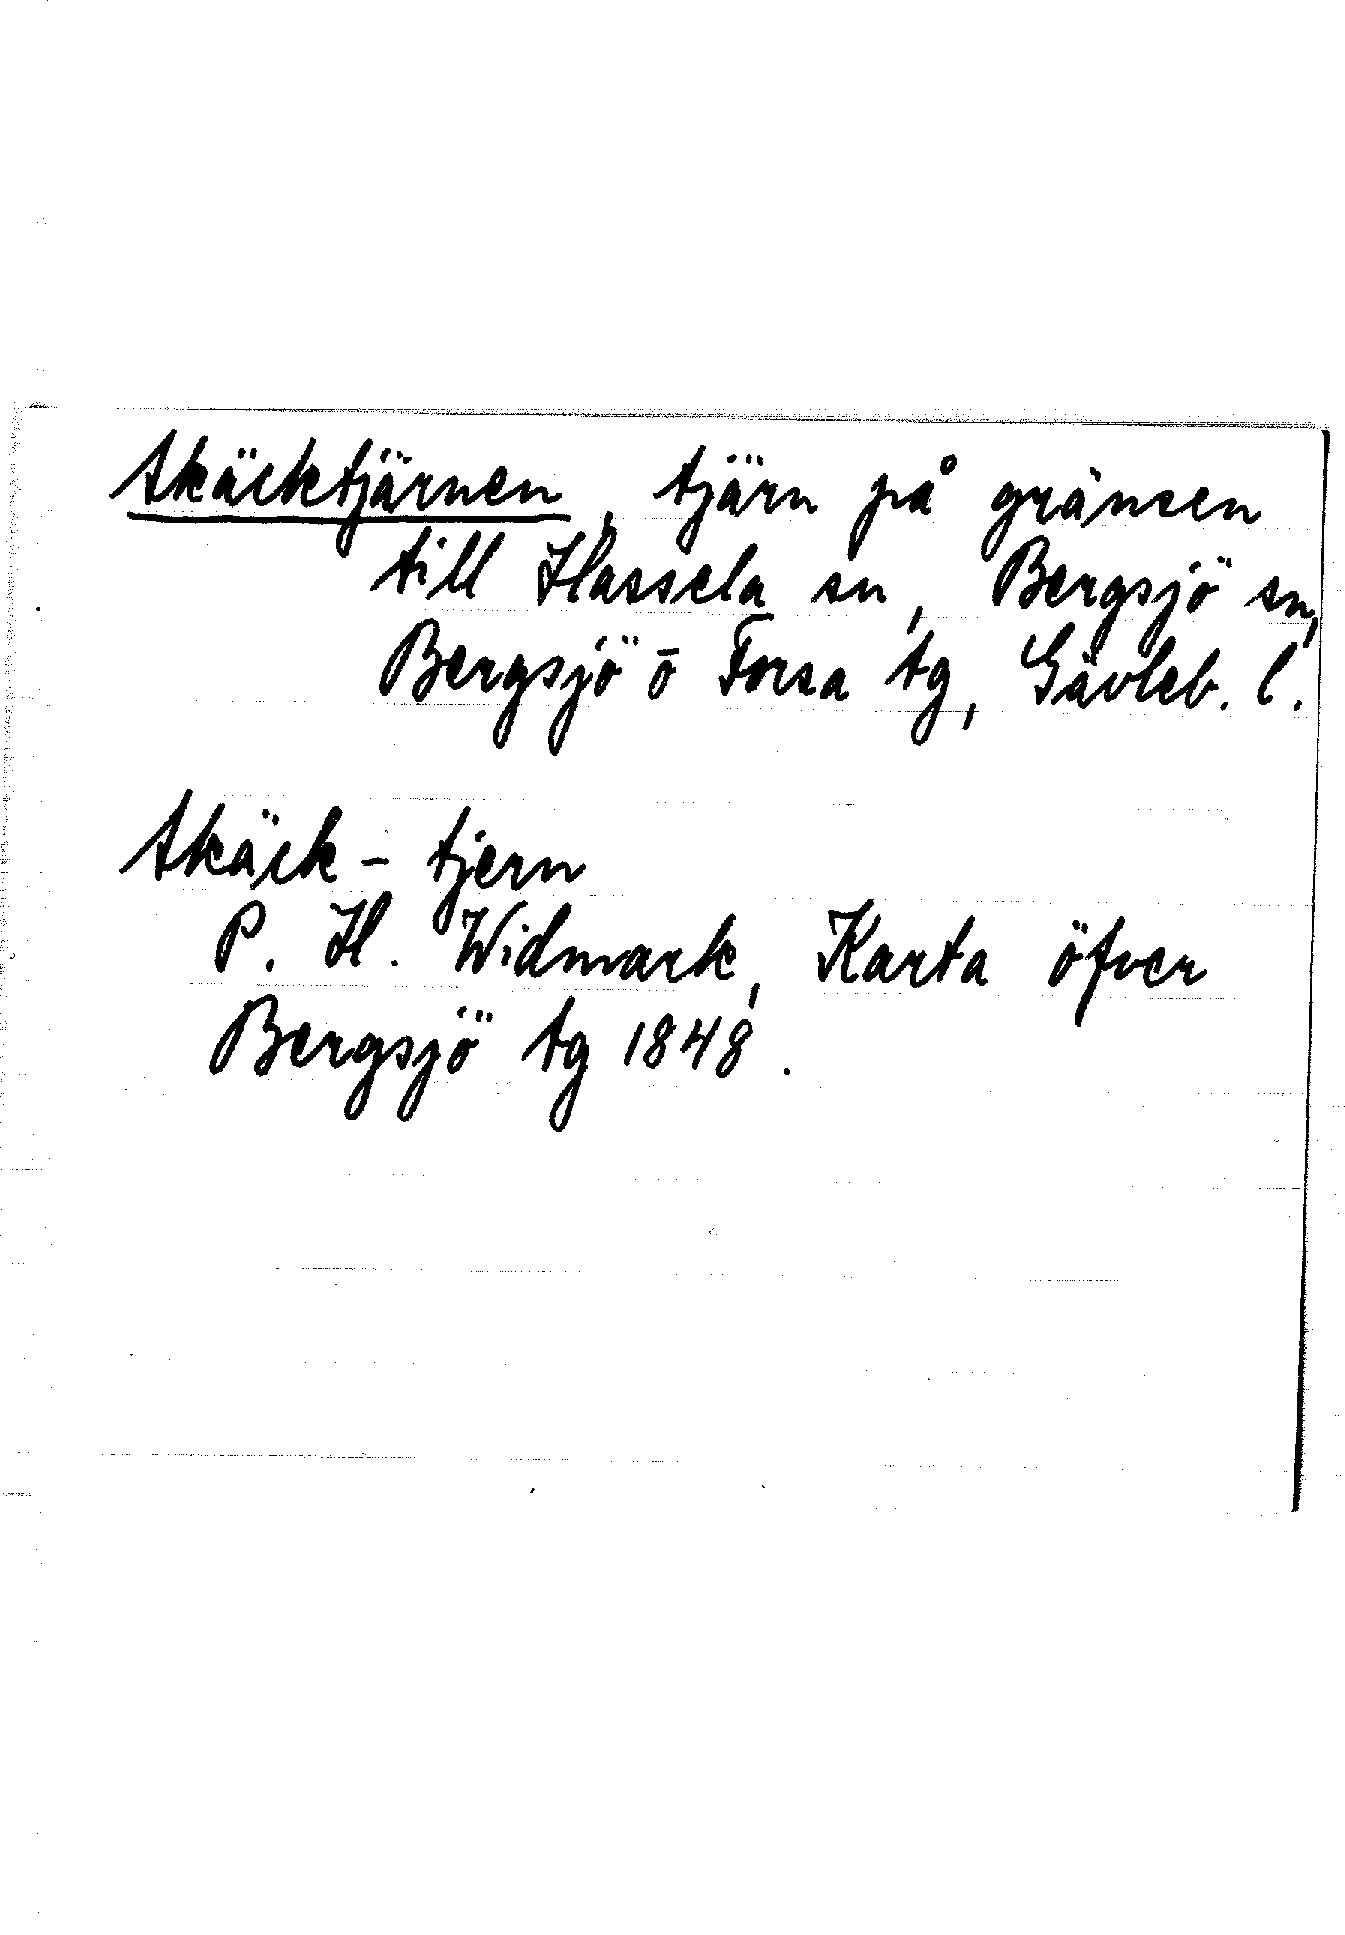 Skäcktjärnen, tjärn på gränsen
till Hassela sn, Bergsjö sn,
Bergsjö ō Forsa tg, Gävleb. l.
Skäck - tjern
P. H. Widmark, Karta öfver
Bergsjö tg 1848.